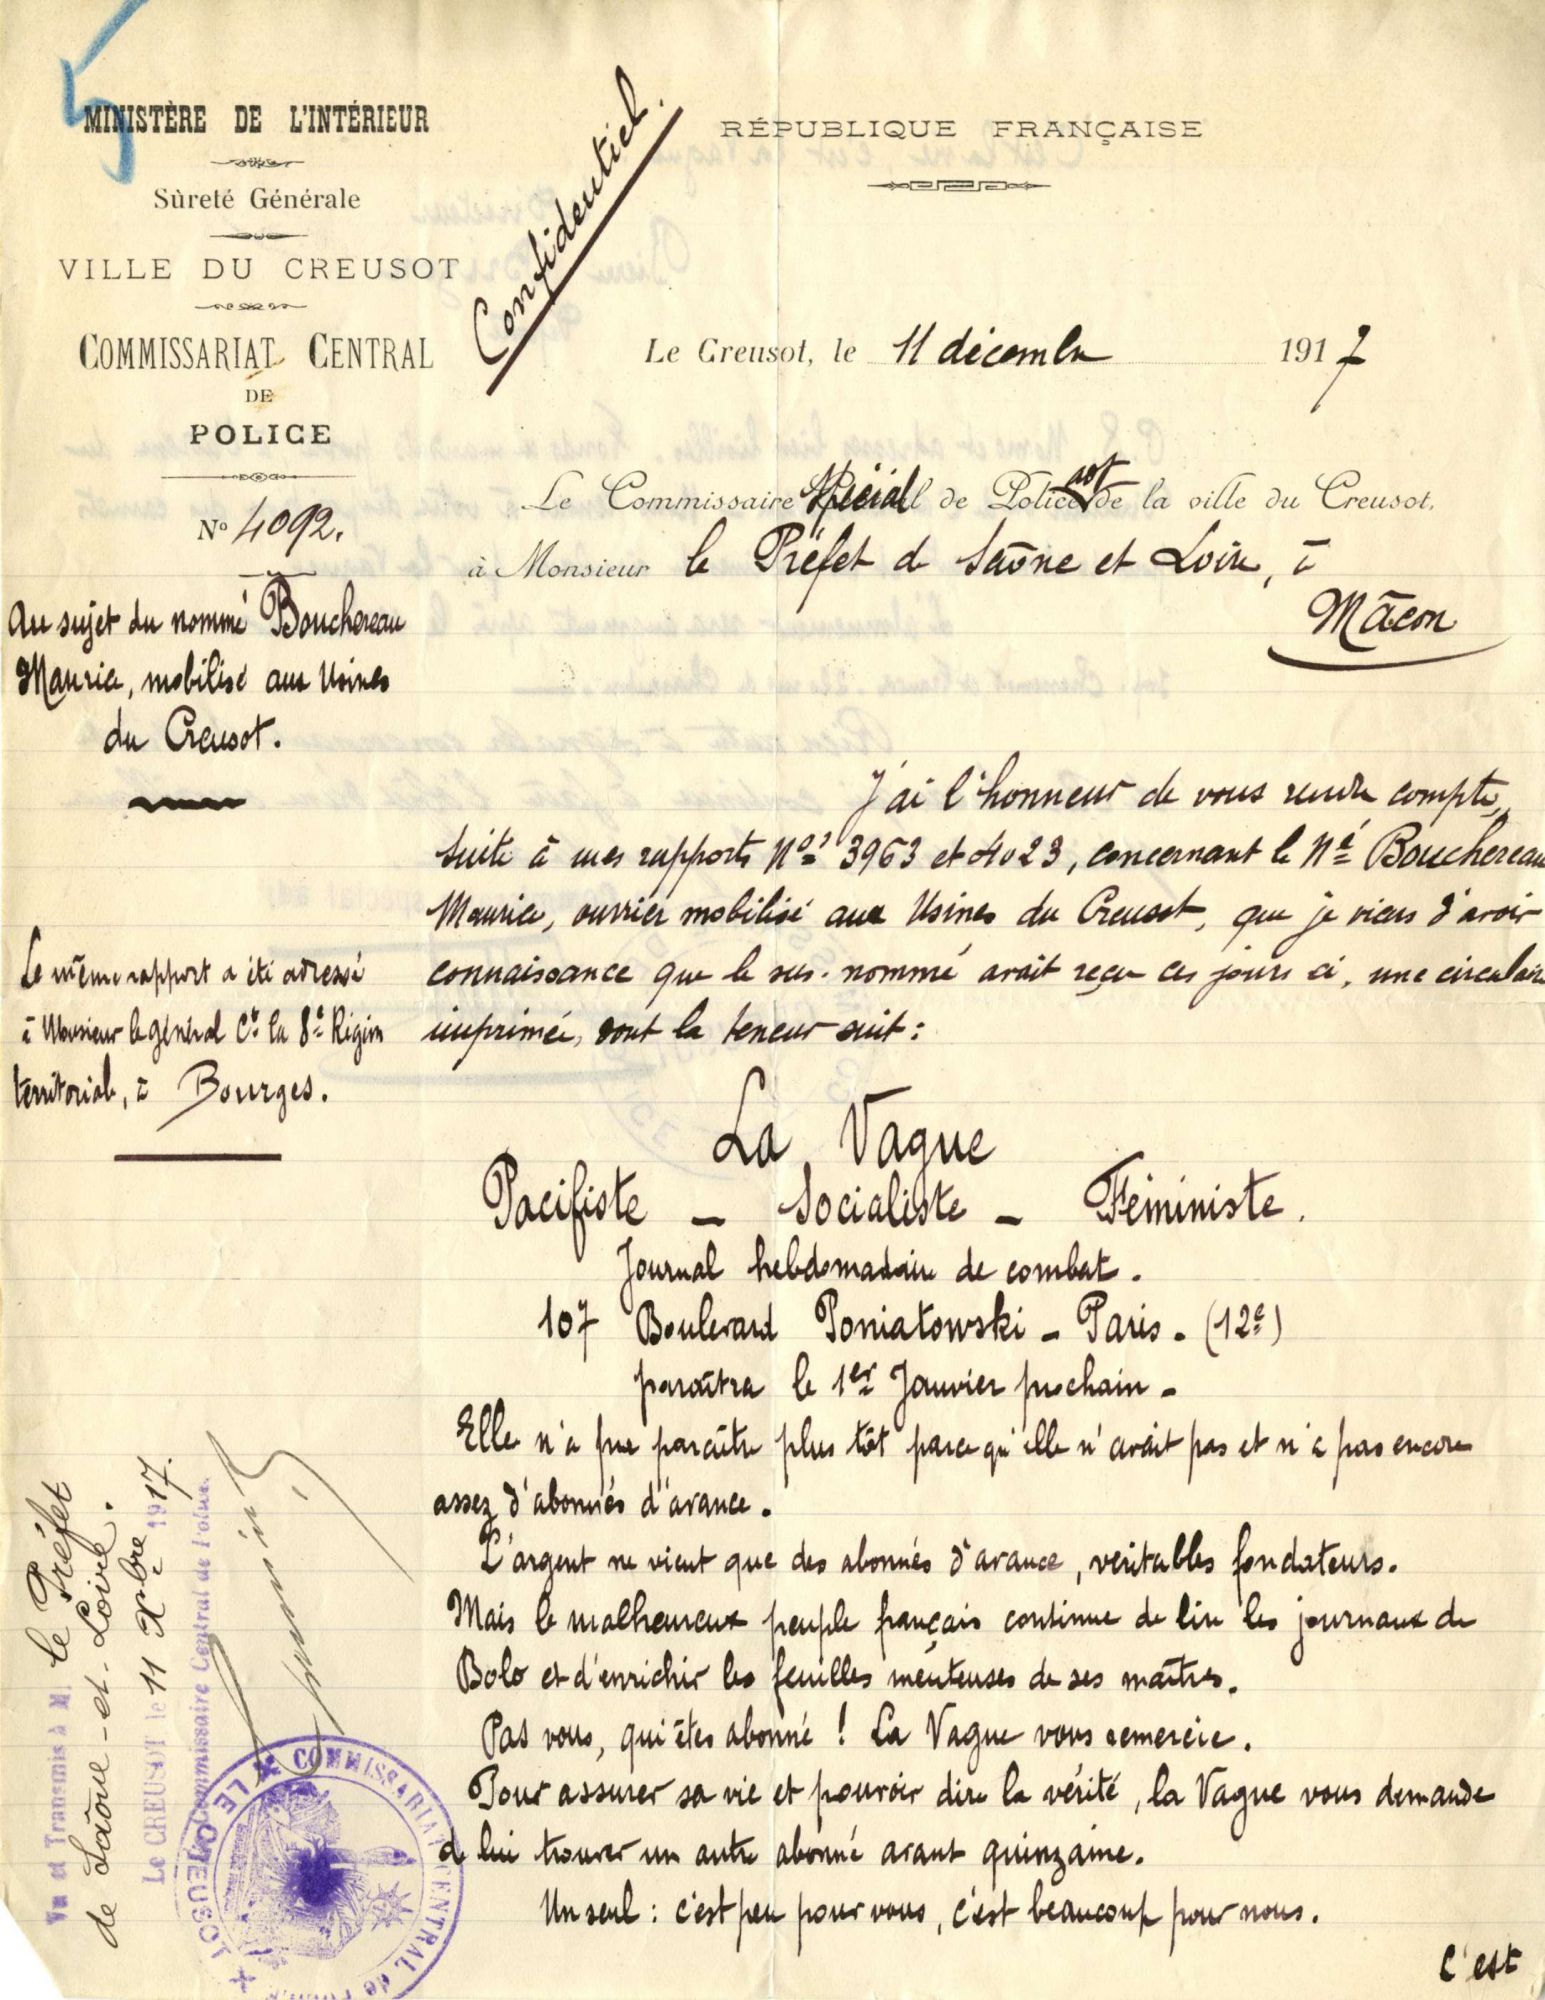 MINISTÈRE DE L'INTÉRIEUR
Sûreté Générale
VILLE DU CREUSOT
COMMISSARIAT CENTRAL
DE
POLICE
N° 4092.
Au sujet du nommé Bouchereau
Maurice, mobilisé aux Usines
du Creusot.
Le même rapport a été adressé
à Monsieur le général Ct la 8e Région
territoriale, à Bourges.
Confidentiel.
RÉPUBLIQUE FRANÇAISE
Le Creusot, le 11 décembre 1917
Le Commissaire Spécial de Police adt de la ville du Creusot,
à Monsieur le Préfet de Saône et Loire, à
Mâcon
J'ai l'honneur de vous rendre compte,
suite à mes rapports Nos 3963 et 4023, concernant le Né Bouchereau
Maurice, ouvrier mobilisé aux Usines du Creusot, que je viens d'avoir
connaissance que le sus-nommé avait reçu ces jours ci, une circulaire
imprimée, dont la teneur suit :
La Vague
Pacifiste – Socialiste – Féministe.
Journal hebdomadaire de combat.
107 Boulevard Poniatowski – Paris – (12e)
paraîtra le 1er Janvier prochain –
Elle n'a pu paraître plus tôt parce qu'elle n'avait pas et n'a pas encore
assez d'abonnés d'avance.
L'argent ne vient que des abonnés d'avance, véritables fondateurs.
Mais le malheureux peuple français continue de lire les journaux de
Bolo et d'enrichir les feuilles menteuses de ses maîtres.
Pas vous, qui êtes abonné ! La Vague vous remercie.
Pour assurer sa vie et pouvoir dire la vérité, la Vague vous demande
de lui trouver un autre abonné avant quinzaine.
Un seul : c'est peu pour vous, c'est beaucoup pour nous.
C'est
Vu et Transmis à M. le Préfet
de Saône-et-Loire.
Le CREUSOT le 11 Xbre 1917.
Commissaire Central de Police.
COMMISSARIAT CENTRAL de POLICE
LE CREUSOT